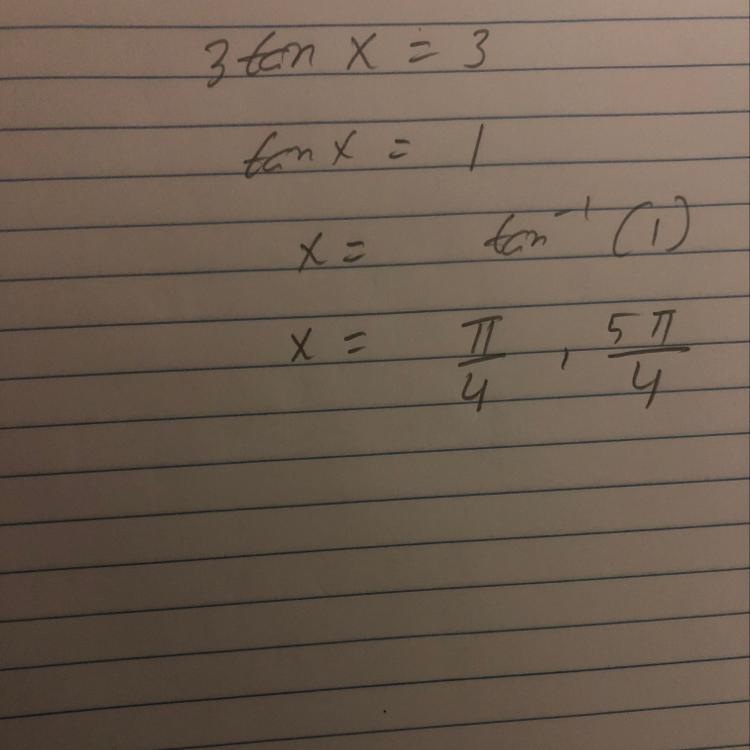 3 tan x = 3
tan x = 1
x = tan⁻¹ (1)
x = π/4 , 5π/4